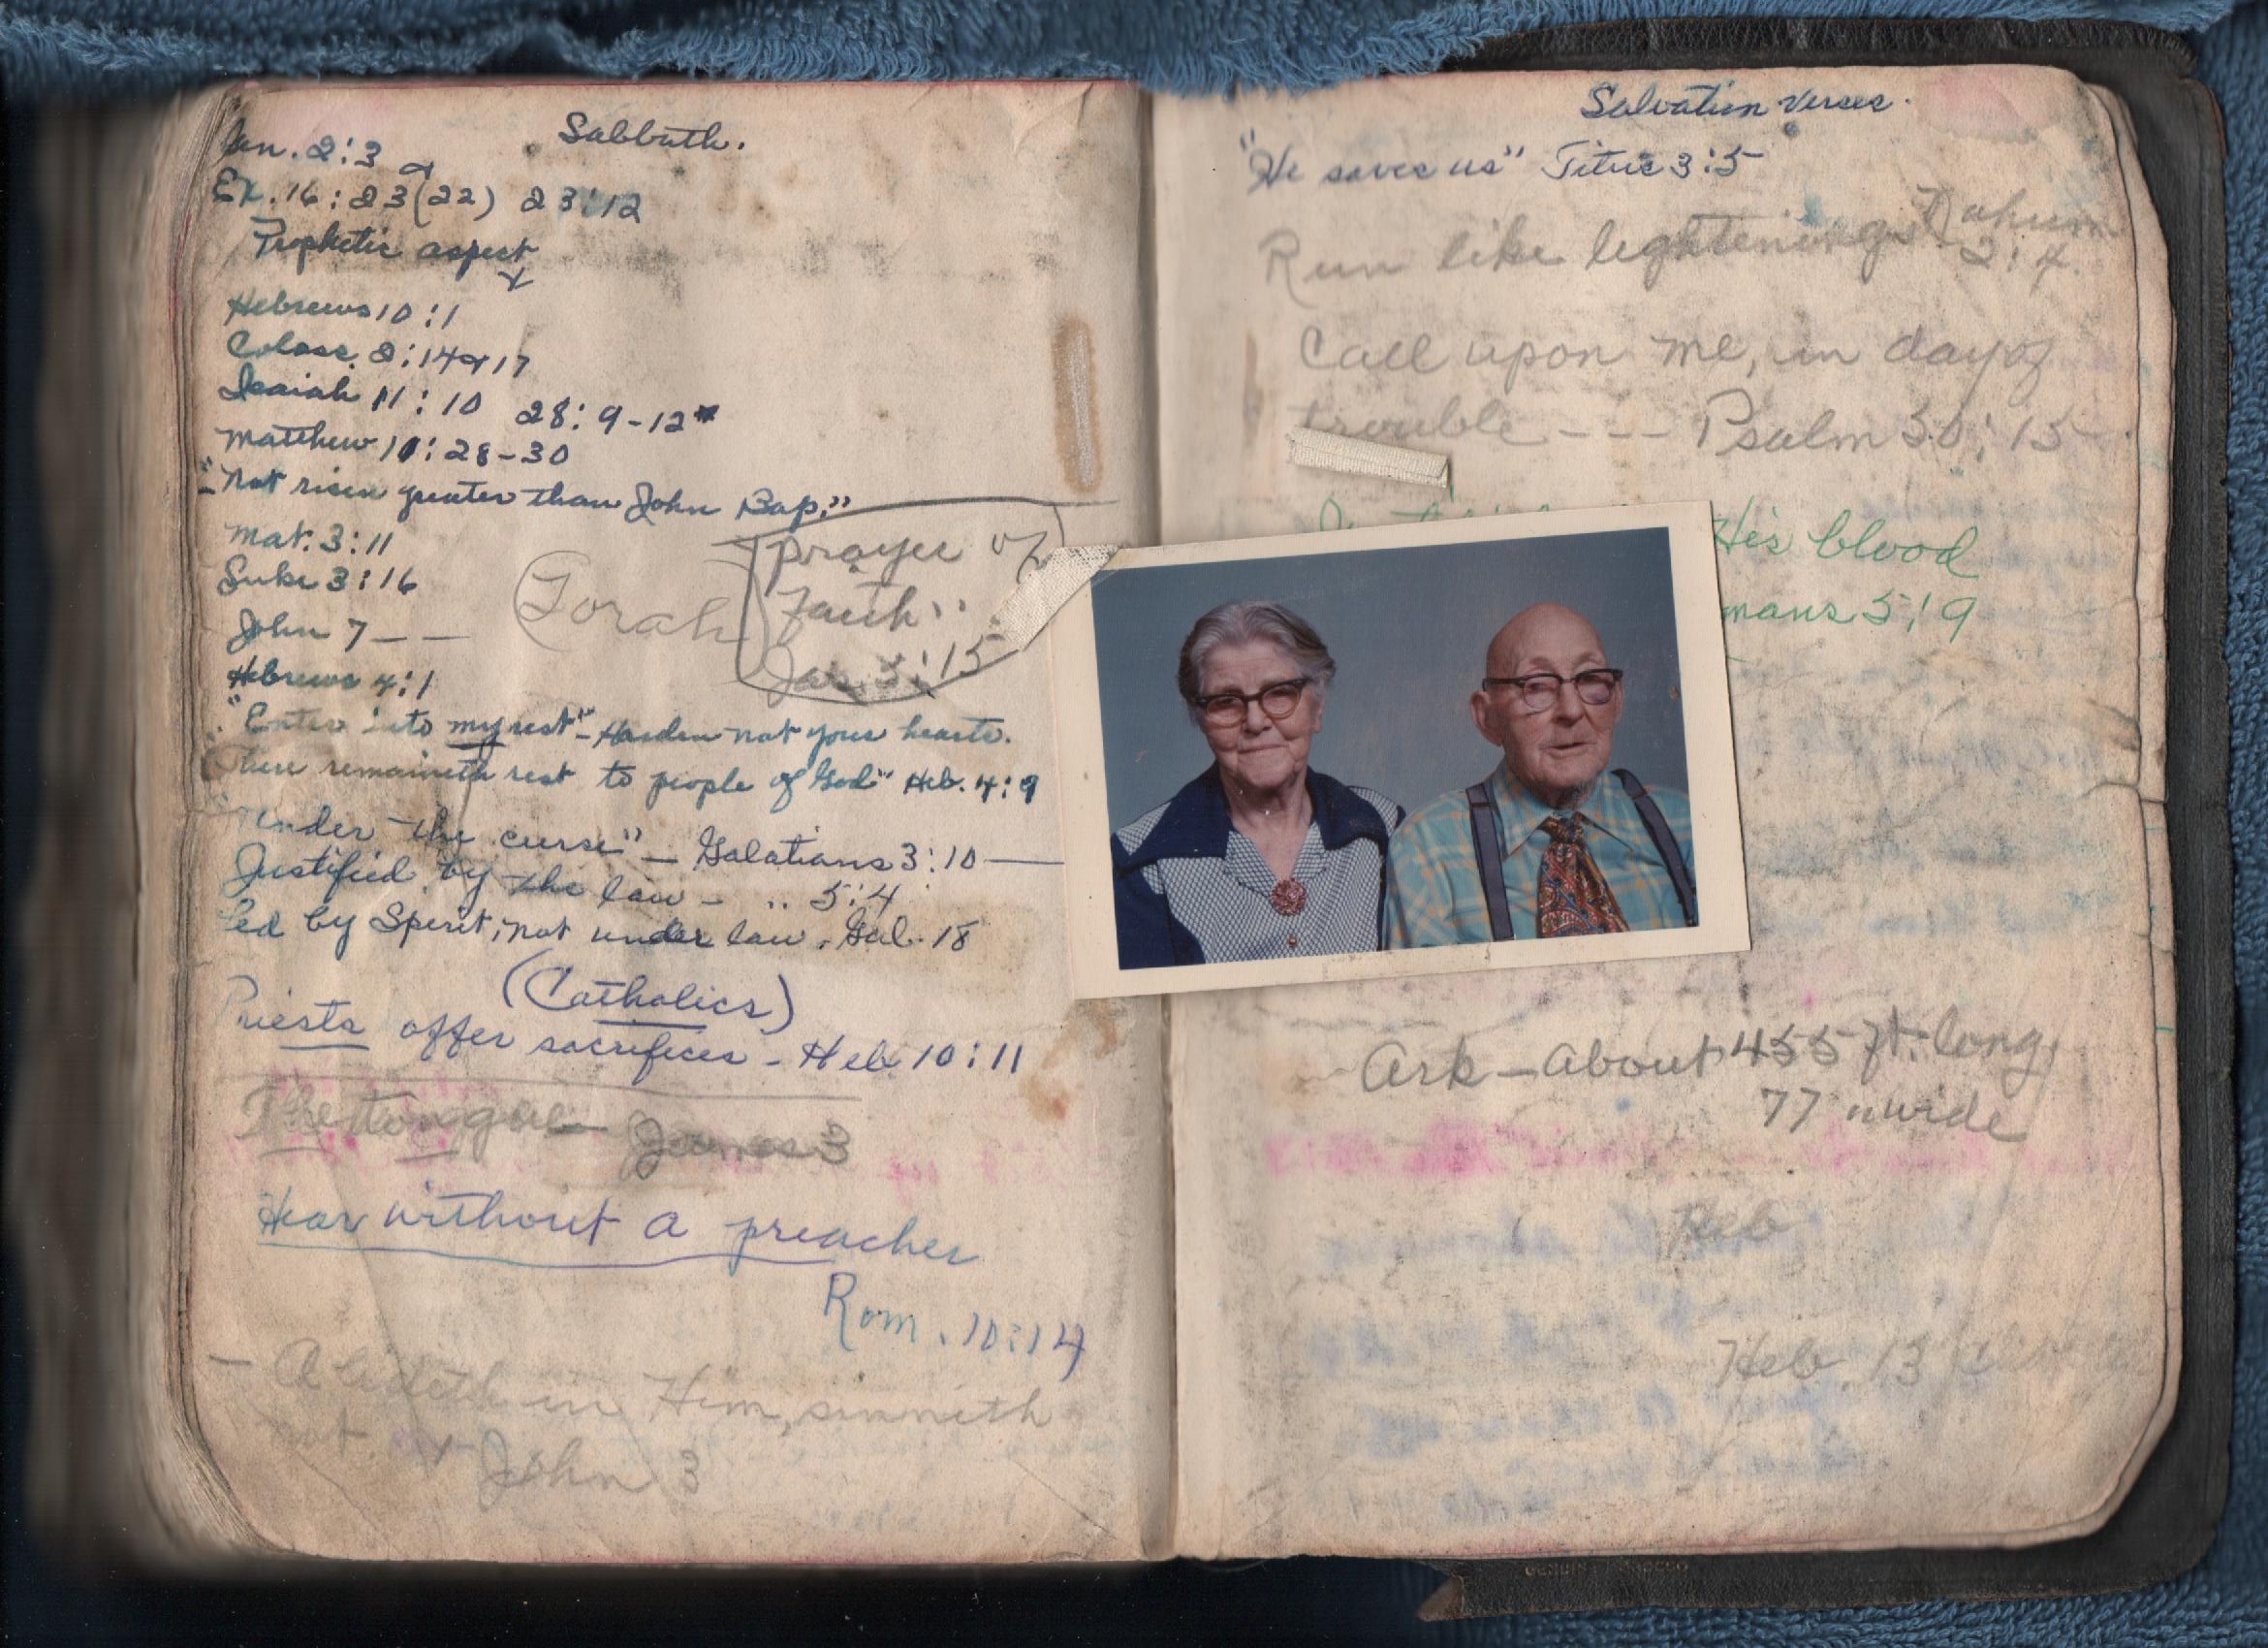 Sabbath.
Gen. 2:3
Ex. 16:23(22) 23:12
Prophetic aspect
Hebrews 10:1
Coloss. 2:14 & 17
Isaiah 11:10 28:9-12*
Matthew 11:28-30
"Not risen greater than John Bap."
Mat. 3:11
Luke 3:16
John 7 — —
Torah
prayer of
faith"
Jas. 5:15
Hebrews 4:1
"Enter into my rest" - Harden not your hearts.
There remaineth rest to people of God" Heb. 4:9
"Under the curse" — Galatians 3:10 —
Justified by the law - " 5:4
Led by Sperit, not under law, Gal. 18
(Catholics)
Priests offer sacrifices - Heb 10:11
The tongue James 3
Hear without a preacher
Rom. 10:14
— Abideth in Him, sinneth
not
1 John 3
Salvation Verses.
"He saves us" Titus 3:5
Run like lightenings Nahum
2:4.
Call upon me, in day of
trouble - - - Psalm 50:15
His blood
mans 5:9
Ark — About 455 ft. long,
77 " wide
Heb
Heb. 13